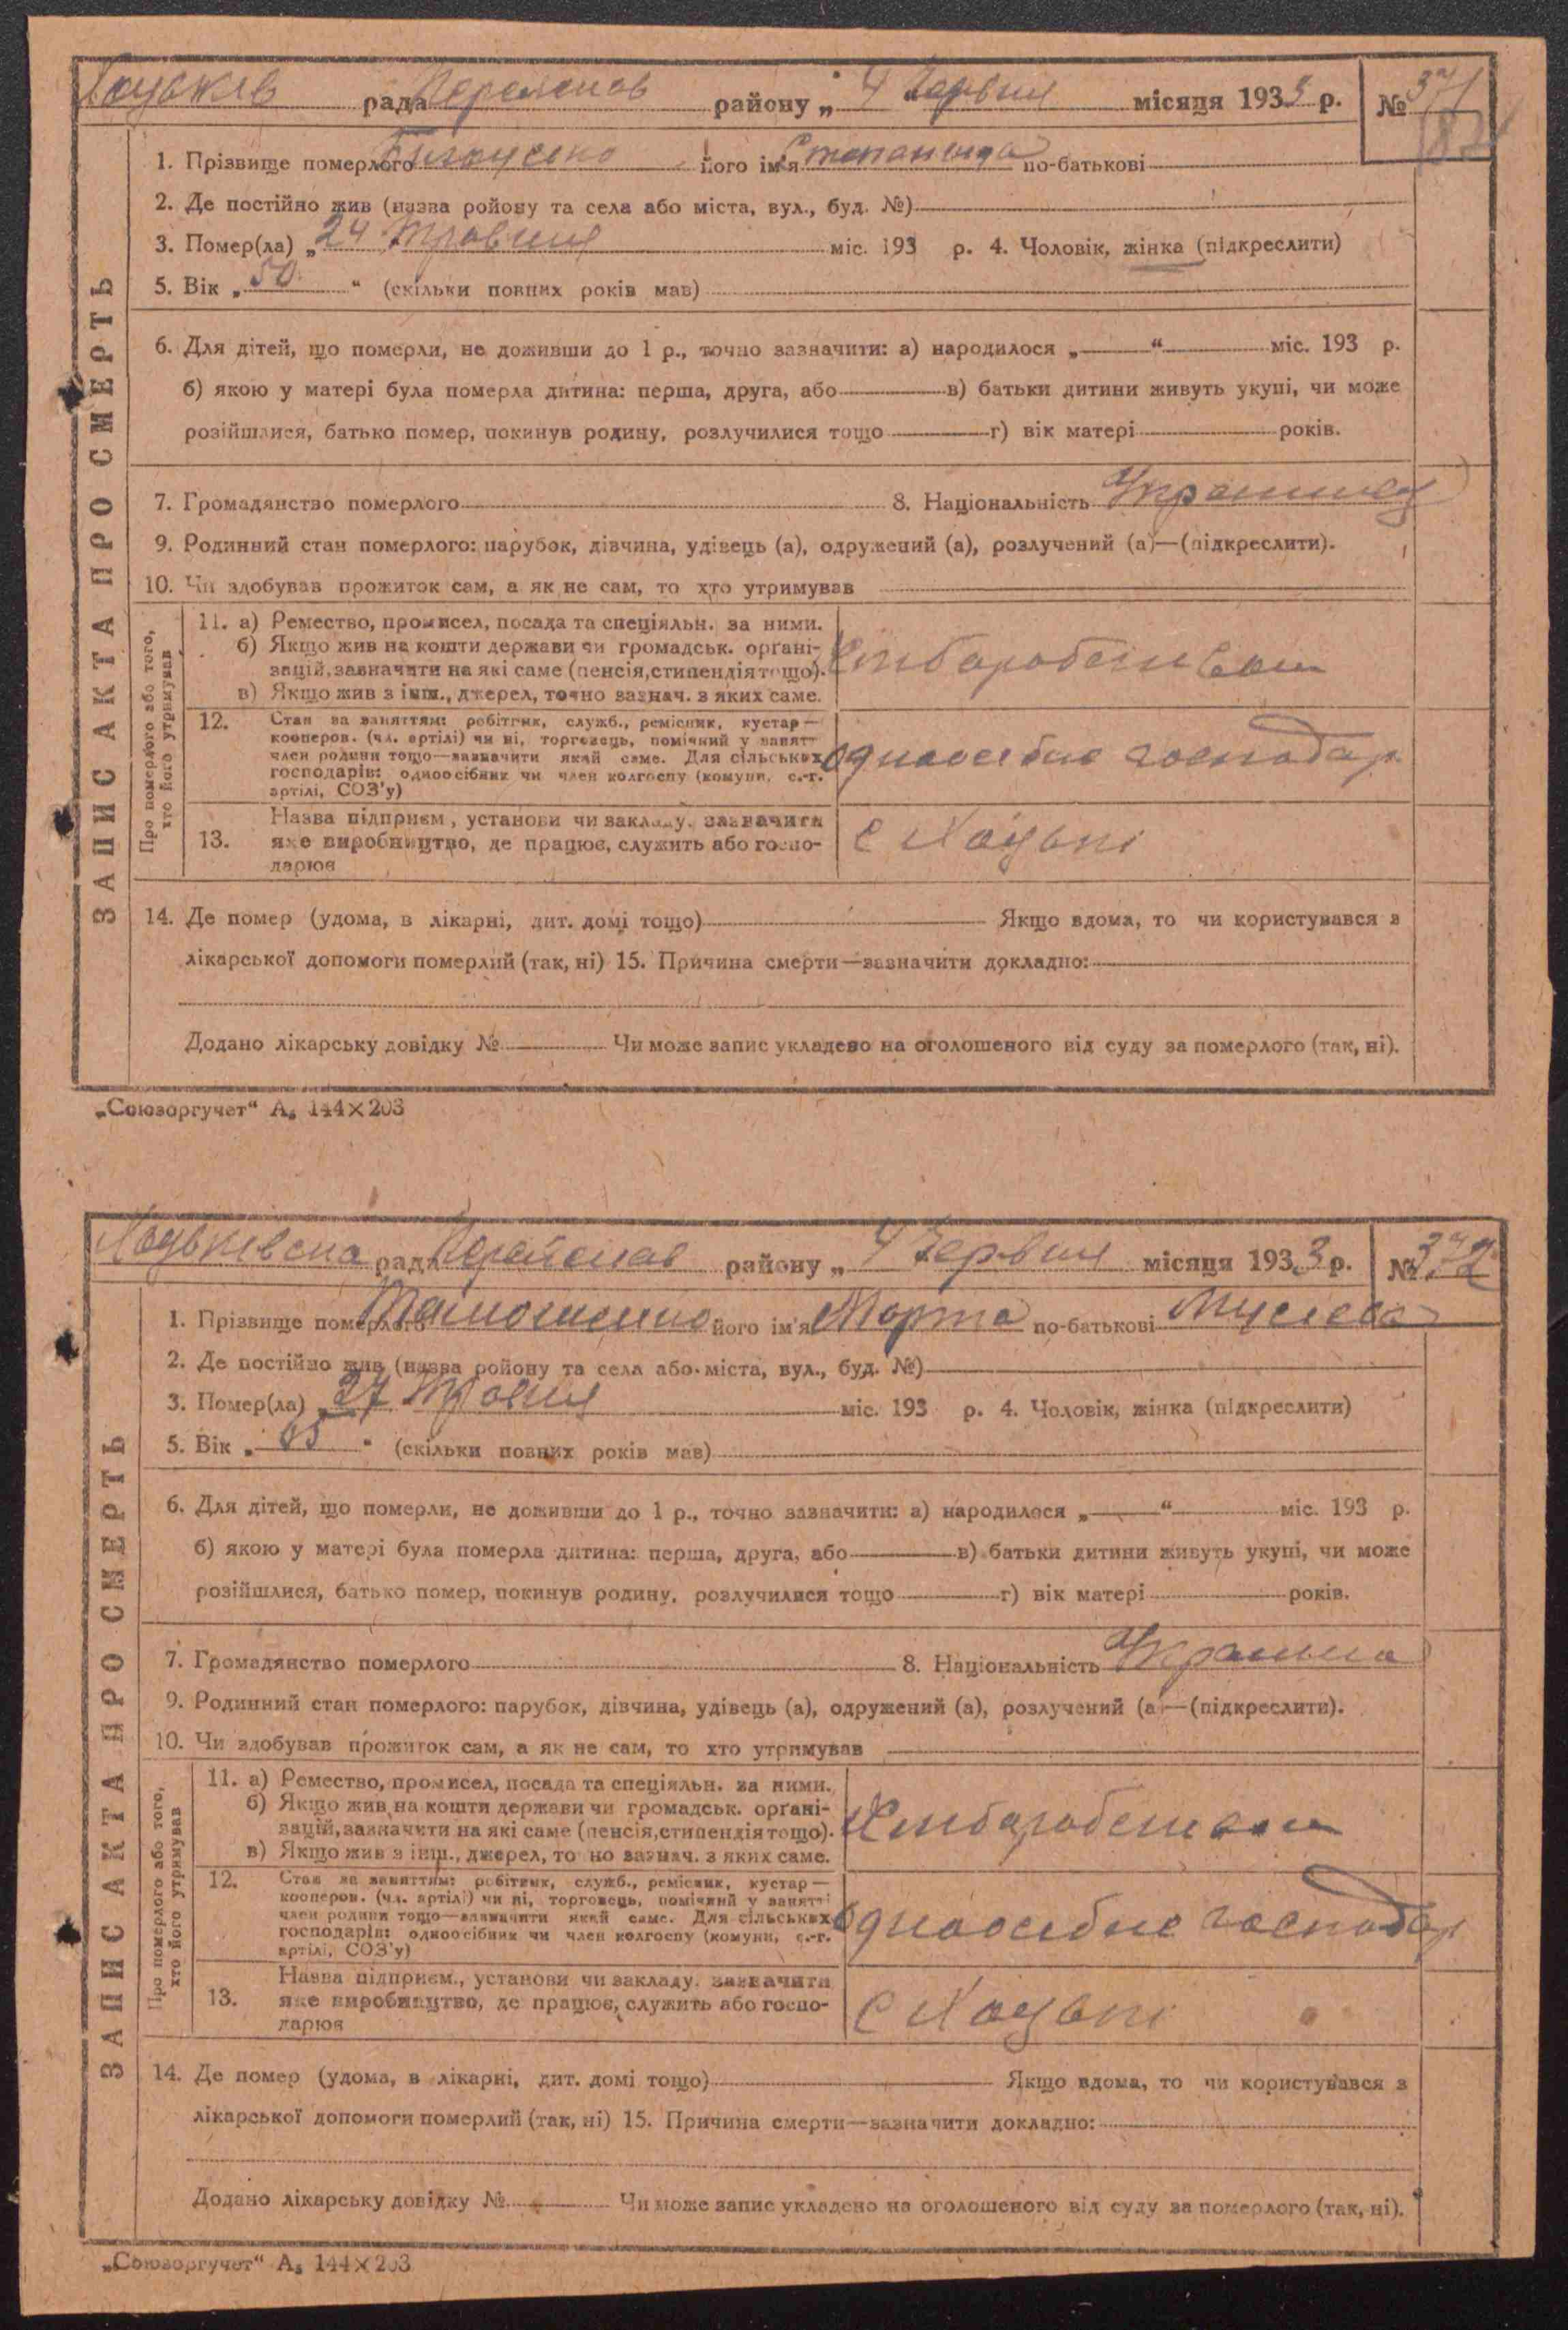 Хоцьків рада Переяслав району „ 4 червня місяця 1933 р. № 371
1. Прізвище померлого його ім'я Степанида по-батькові
2. Де постійно жив (назва ройону та села або міста, вул., буд. №)
3. Помер(ла) „ 24 травня міс. 193 р. 4. Чоловік, жінка (підкреслити)
5. Вік „ 50 “ (скільки повних років мав)
6. Для дітей, що померли, не доживши до 1 р., точно зазначити: а) народилося „ “ міс. 193 р.
б) якою у матері була померла дитина: перша, друга, або в) батьки дитини живуть укупі, чи може
розійшлися, батько помер, покинув родину, розлучилися тощо г) вік матері років.
7. Громадянство померлого 8. Національність
9. Родинний стан померлого: парубок, дівчина, удівець (а), одружений (а), розлучений (а)—(підкреслити).
10. Чи здобував прожиток сам, а як не сам, то хто утримував
ЗАПИС АКТА ПРО СМЕРТЬ
Про померлого або того,
хто його утримував
11. а) Ремество, промисел, посада та спеціяльн. за ними.
б) Якщо жив на кошти держави чи громадськ. орґані-
зацій, зазначити на які саме (пенсія, стипендія тощо).
в) Якщо жив з інш., джерел, точно зазнач. з яких саме.
12. Стан за заняттям: робітник, служб., ремісник, кустар—
кооперов. (чл. артілі) чи ні, торговець, помічний у занятт
член родини тощо—зазначити який саме. Для сільських
господарів: одноосібник чи член колгоспу (комуни, с.-г.
артілі, СОЗ'у)
одноосібне господар
13. Назва підприєм., установи чи закладу, зазначити
яке виробництво, де працює, служить або госпо-
дарює
с Хоцьки
14. Де помер (удома, в лікарні, дит. домі тощо) Якщо вдома, то чи користувався з
лікарської допомоги померлий (так, ні) 15. Причина смерти—зазначити докладно:
Додано лікарську довідку № Чи може запис укладено на оголошеного від суду за померлого (так, ні).
„Союзоргучет“ А₅ 144×203
Хоцьківська рада Переяслав району „ 4 червня місяця 1933 р. № 372
1. Прізвище померлого Тимошенко його ім'я Марта по-батькові
2. Де постійно жив (назва ройону та села або міста, вул., буд. №)
3. Помер(ла) „ 27 травня міс. 193 р. 4. Чоловік, жінка (підкреслити)
5. Вік „ 65 “ (скільки повних років мав)
6. Для дітей, що померли, не доживши до 1 р., точно зазначити: а) народилося „ “ міс. 193 р.
б) якою у матері була померла дитина: перша, друга, або в) батьки дитини живуть укупі, чи може
розійшлися, батько помер, покинув родину, розлучилися тощо г) вік матері років.
7. Громадянство померлого 8. Національність
9. Родинний стан померлого: парубок, дівчина, удівець (а), одружений (а), розлучений (а)—(підкреслити).
10. Чи здобував прожиток сам, а як не сам, то хто утримував
ЗАПИС АКТА ПРО СМЕРТЬ
Про померлого або того,
хто його утримував
11. а) Ремество, промисел, посада та спеціяльн. за ними.
б) Якщо жив на кошти держави чи громадськ. орґані-
зацій, зазначити на які саме (пенсія, стипендія тощо).
в) Якщо жив з інш., джерел, то но зазнач. з яких саме.
12. Стан за заняттям: робітник, служб., ремісник, кустар—
кооперов. (чл. артілі) чи ні, торговець, помічний у занятті
член родини тощо—зазначити який саме. Для сільських
господарів: одноосібник чи член колгоспу (комуни, с.-г.
артілі, СОЗ'у)
одноосібне господар
13. Назва підприєм., установи чи закладу, зазначити
яке виробництво, де працює, служить або госпо-
дарює
с Хоцьки
14. Де помер (удома, в лікарні, дит. домі тощо) Якщо вдома, то чи користувався з
лікарської допомоги померлий (так, ні) 15. Причина смерти—зазначити докладно:
Додано лікарську довідку № Чи може запис укладено на оголошеного від суду за померлого (так, ні).
„Союзоргучет“ А₅ 144×203